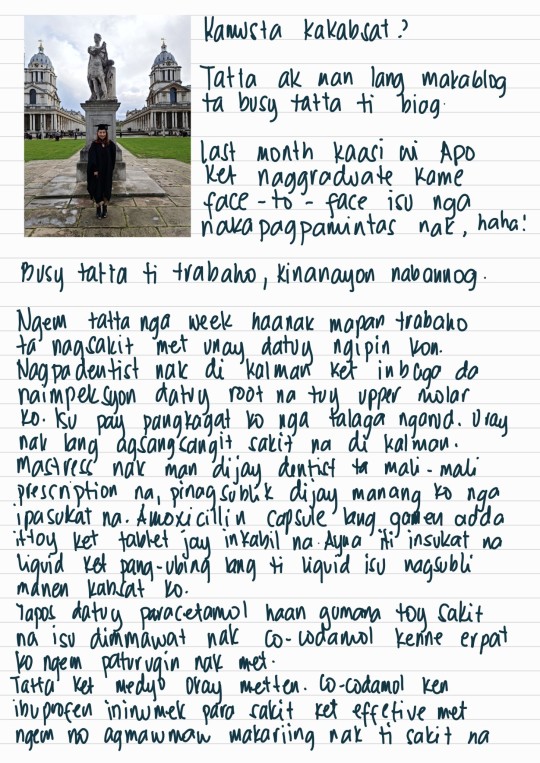 Kamusta kakabsat?
Tatta ak man lang makablog
ta busy tatta ti biag.
Last month kaasi ni Apo
ket naggraduate kame
face-to-face isu nga
nakapagpamintas nak, haha!
Busy tatta ti trabaho, kinanayon nabannog.
Ngem tatta nga week haanak mapan trabaho
ta nagsakit met unay datuy ngipin kon.
Nagpadentist nak di kalman ket inbaga da
naimpeksyon datuy root na tuy upper molar
ko. Isu pay pangkagat ko nga talaga ngarud. Uray
nak lang agsangsangit sakit na di kalman.
Mastress nak man dijay dentist ta mali-mali
prescription na, pinagsublik dijay manang ko nga
ipasukat na. Amoxicillin capsule lang gamen adda
ittoy ket tablet jay inkabil na. Ayna iti insukat na
liquid ket pang-ubing lang ti liquid isu nagsubli
manen kabsat ko.
Tapos datuy paracetamol haan gumana toy sakit
na isu dimmawat nak co-codamol kenne erpat
ko ngem paturugin nak met.
Tatta ket medyo oray metten. Co-codamol ken
ibuprofen ininumek para sakit ket effetive met
ngem no agmawmaw makariing nak ti sakit na